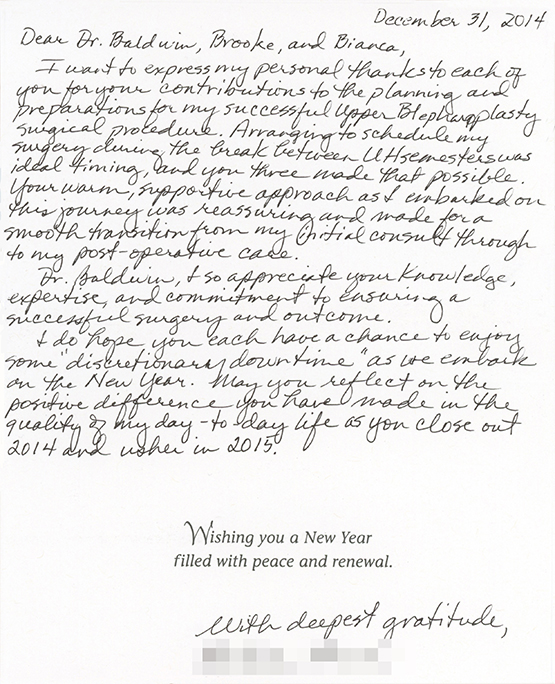 December 31, 2014
Dear Dr. Baldwin, Brooke, and Bianca,
I want to express my personal thanks to each of
you for your contributions to the planning and
preparations for my successful Upper Blepharoplasty
surgical procedure. Arranging to schedule my
surgery during the break between UH semesters was
ideal timing, and you three made that possible.
Your warm, supportive approach as I embarked on
this journey was reassuring and made for a
smooth transition from my initial consult through
to my post-operative care.
Dr. Baldwin, I so appreciate your knowledge,
expertise, and commitment to ensuring a
successful surgery and outcome.
I do hope you each have a chance to enjoy
some "discretionary down time" as we embark
on the New Year. May you reflect on the
positive difference you have made in the
quality of my day-to-day life as you close out
2014 and usher in 2015.
Wishing you a New Year
filled with peace and renewal.
With deepest gratitude,